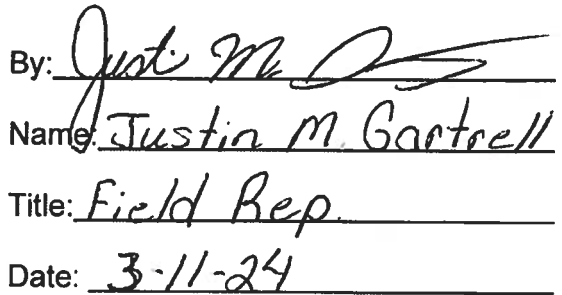 By: Justin M
Name: Justin M. Gartrell
Title: Field Rep.
Date: 3-11-24